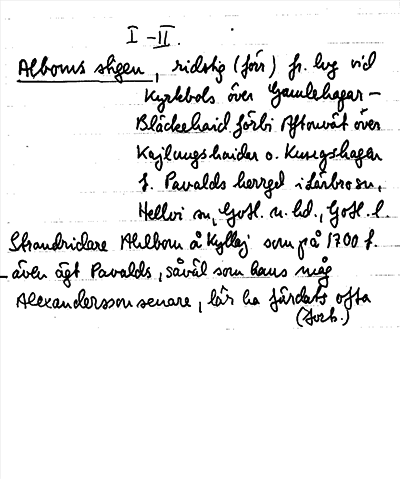 I-II.
Alboms stigen, ridstig (förr) fr. lvg vid
Kyrkbols över Gamlehagar -
Bläckehaid förbi Aftonvät över
Kajlungshaidar o. Kungshagen
t. Pavalds herrgd i Lärbro sn,
Hellvi sn, Gotl. n. hd., Gotl. l.
Strandridare Ahlbom å Kyllej som på 1700 t.
även ägt Pavalds, såväl som hans måg
Alexandersson senare, lär ha färdats ofta
(forts.)